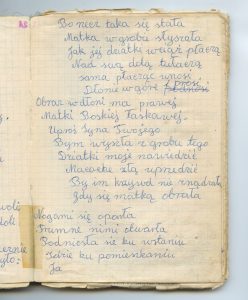 Bo rzecz taka się stała
Matka w grobie słyszała
Jak jej dziatki wciąż płaczą
Nad swą dolą tułaczą
sama płacząc wnosi
Dłonie w górę i prosi
Obraz w dłoni ma prawej
Matki Boskiej Łaskawej.
Uproś Syna Twojego
Bym wyszła z grobu tego
Dziatki moje nawiedzić
Macochę złą uprzedzić
By im krzywd nie
Gdy się matką obrała
Nogami się oparła
Trumnę nimi otwarła
Podniosła się ku wstaniu
Idzie ku pomieszkaniu
Ja